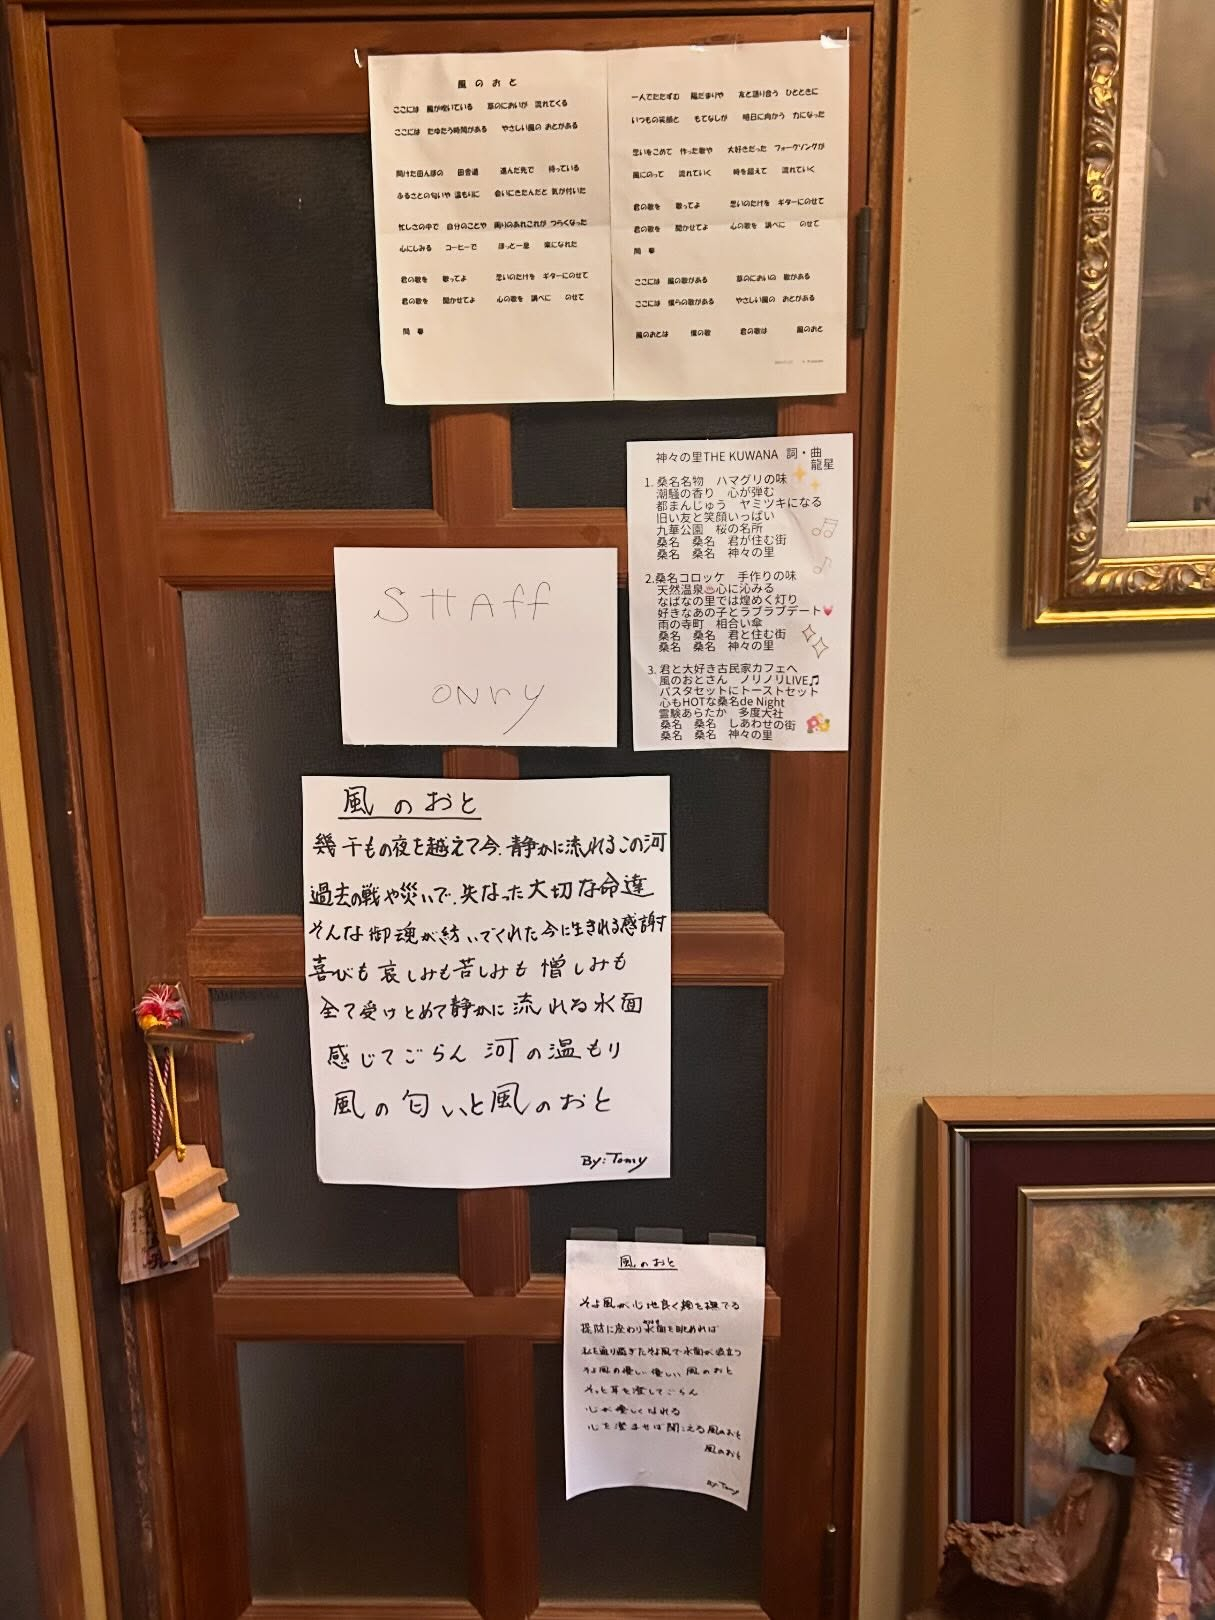 風 の お と
ここには 風が吹いている 草のにおいが 流れてくる
ここには たゆたう時間がある やさしい風の おとがある
開けた田んぼの 田舎道 進んだ先で 待っている
ふるさとの匂いや 温もりに 会いにきたんだと 気が付いた
忙しさの中で 自分のことや 周りのあれこれが つらくなった
心にしみる コーヒーで ほっと一息 楽になれた
君の歌を 歌ってよ 思いのたけを ギターにのせて
君の歌を 聞かせてよ 心の歌を 調べに のせて
間 奏
一人でたたずむ 陽だまりや 友と語り合う ひとときに
いつもの笑顔と もてなしが 明日に向かう 力になった
思いをこめて 作った歌や 大好きだった フォークソングが
風にのって 流れていく 時を超えて 流れていく
君の歌を 歌ってよ 思いのたけを ギターにのせて
君の歌を 聞かせてよ 心の歌を 調べに のせて
間 奏
ここには 風の歌がある 草のにおいの 歌がある
ここには 僕らの歌がある やさしい風の おとがある
風のおとは 僕の歌 君の歌は 風のおと
神々の里THE KUWANA 詞・曲
龍星
1. 桑名名物 ハマグリの味
潮騒の香り 心が弾む
都まんじゅう ヤミツキになる
旧い友と笑顔いっぱい
九華公園 桜の名所
桑名 桑名 君が住む街
桑名 桑名 神々の里
2.桑名コロッケ 手作りの味
天然温泉♨心に沁みる
なばなの里では煌めく灯り
好きなあの子とラブラブデート💗
雨の寺町 相合い傘
桑名 桑名 君と住む街
桑名 桑名 神々の里
3. 君と大好き古民家カフェへ
風のおとさん ノリノリLIVE♫
パスタセットにトーストセット
心もHOTな桑名de Night
霊験あらたか 多度大社
桑名 桑名 しあわせの街
桑名 桑名 神々の里
STTAff
ONry
風のおと
幾千もの夜を越えて今、静かに流れるこの河
過去の戦や災いで、失なった大切な命達
そんな御魂が紡いでくれた今に生きれる感謝
喜びも哀しみも苦しみも憎しみも
全て受けとめて静かに流れる水面
感じてごらん 河の温もり
風の匂いと風のおと
By:Tomy
風のおと
そよ風が心地良く頬を撫でる
堤防に座わり水面を眺めれば
私を通り過ぎたそよ風で水面が波立つ
そよ風の優しい優しい風のおと
そっと耳を澄してごらん
心が優しくなれる
心を澄ませば聞こえる風のおと
風のおと
By:Tomy